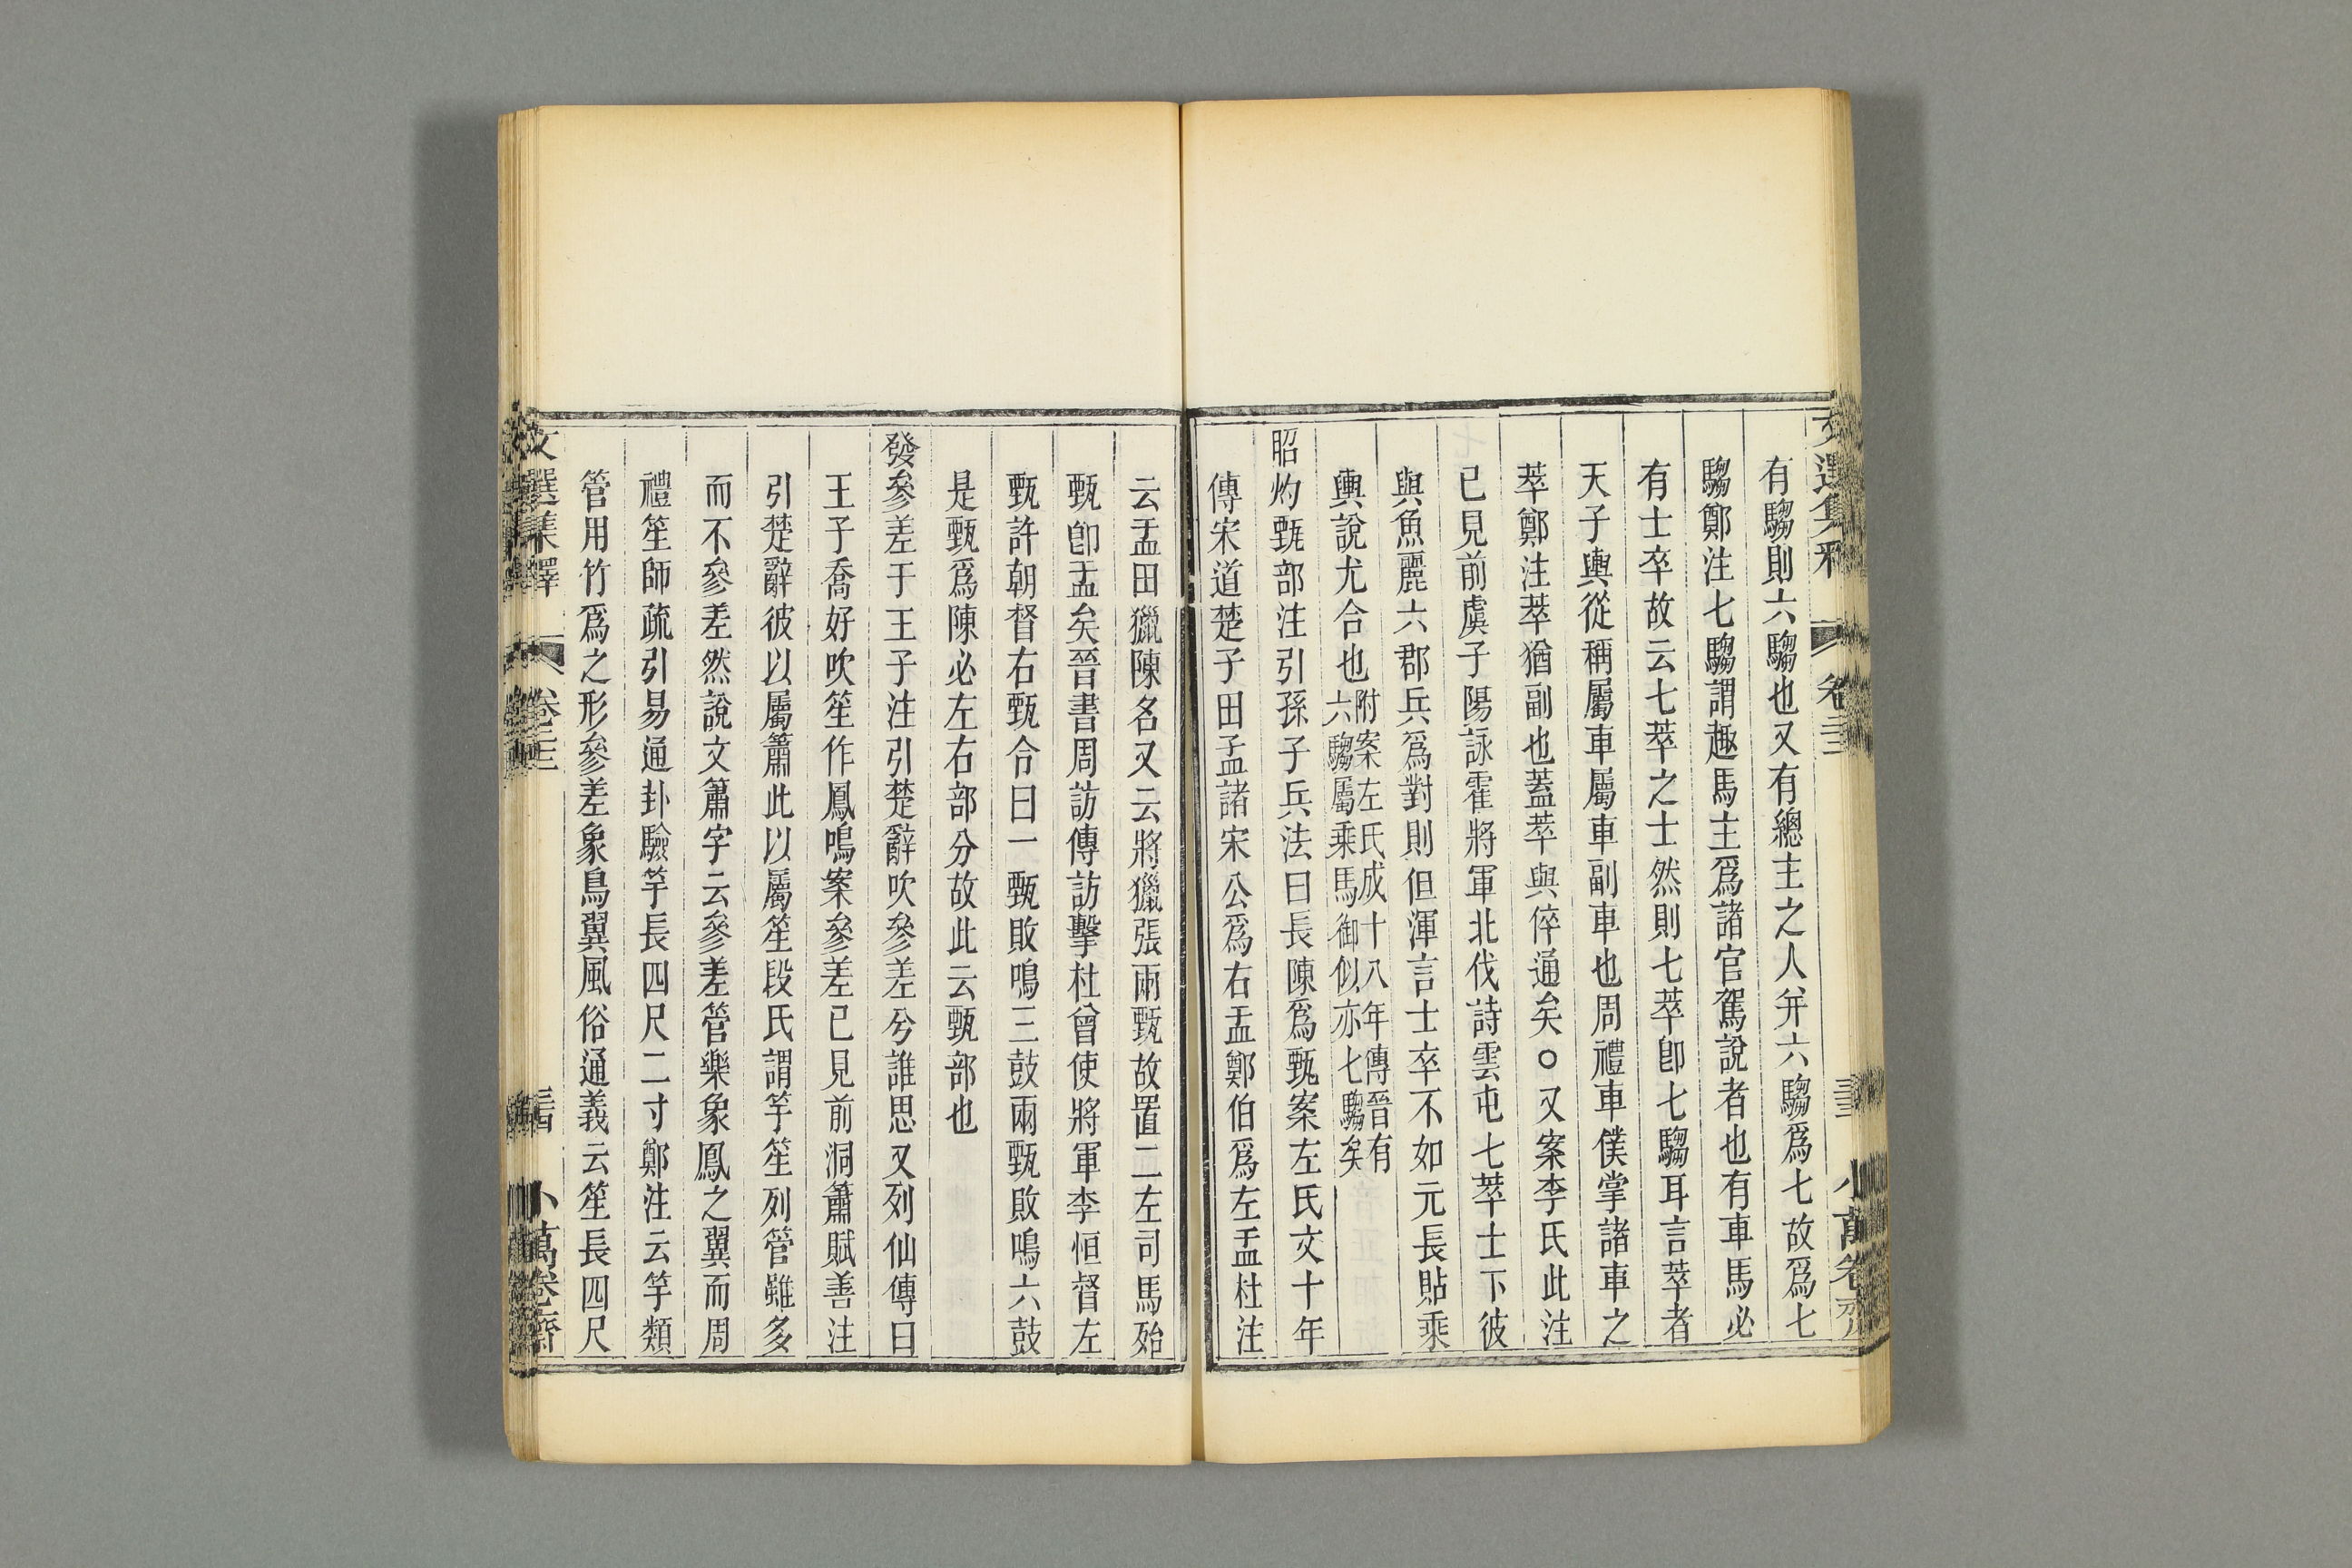 文選集釋 卷二十三 三十三 小萬卷齋
有騶則六騶也又有總主之人幷六騶爲七故爲七
騶鄭注七騶謂趣馬主爲諸官駕說者也有車馬必
有士卒故云七萃之士然則七萃卽七騶耳言萃者
天子輿從稱屬車屬車副車也周禮車僕掌諸車之
萃鄭注萃猶副也蓋萃與倅通矣○又案李氏此注
已見前虞子陽詠霍將軍北伐詩雲屯七萃士下彼
與魚麗六郡兵爲對則但渾言士卒不如元長貼乘
輿說尤合也附案左氏成十八年傳晉有
六騶屬乘馬御似亦七騶矣
昭灼甄部注引孫子兵法曰長陳爲甄案左氏文十年
傳宋道楚子田孟諸宋公爲右盂鄭伯爲左盂杜注
云盂田獵陳名又云將獵張兩甄故置二左司馬殆
甄卽盂矣晉書周訪傳訪擊杜曾使將軍李恒督左
甄許朝督右甄合曰一甄敗鳴三鼓兩甄敗鳴六鼓
是甄爲陳必左右部分故此云甄部也
發參差于王子注引楚辭吹參差兮誰思又列仙傳曰
王子喬好吹笙作鳳鳴案參差已見前洞簫賦善注
引楚辭彼以屬簫此以屬笙段氏謂竽笙列管雖多
而不參差然說文簫字云參差管樂象鳳之翼而周
禮笙師疏引易通卦驗竽長四尺二寸鄭注云竽類
管用竹爲之形參差象鳥翼風俗通義云笙長四尺
文選集釋 卷二十三 三十四 小萬卷齋